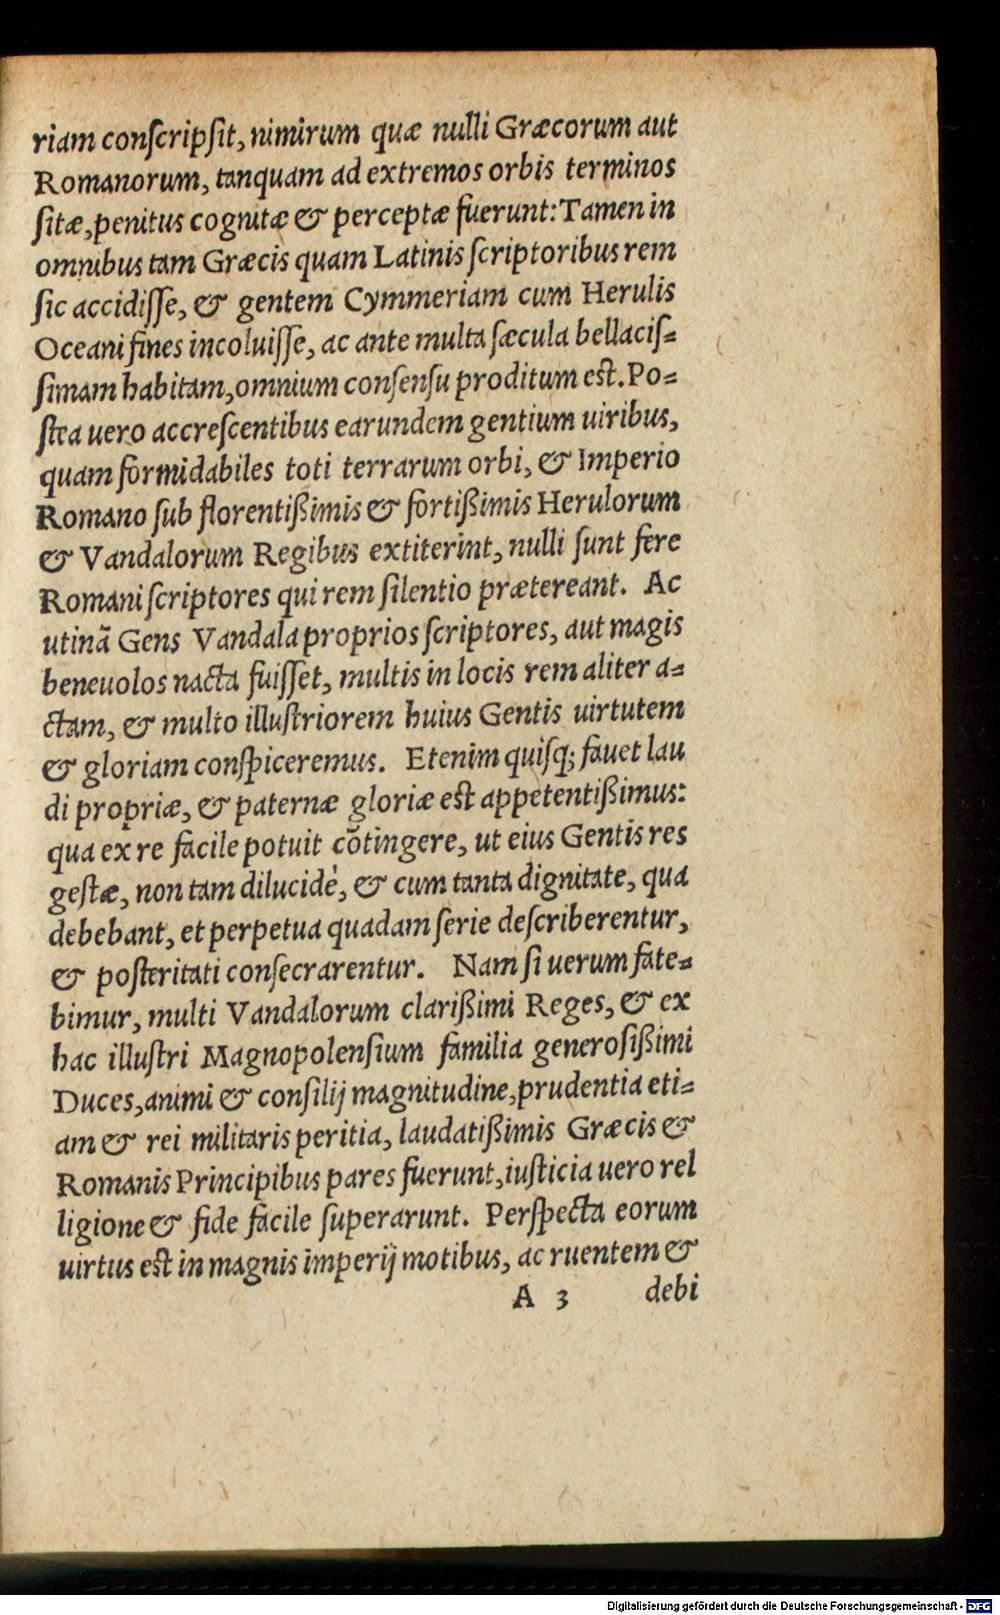 riam conſcripſit, nimirum quæ nulli Græcorum aut
Romanorum, tanquam ad extremos orbis terminos
ſitæ, penitus cognitæ & perceptæ fuerunt: Tamen in
omnibus tam Græcis quam Latinis ſcriptoribus rem
ſic accidiſſe, & gentem Cymmeriam cum Herulis
Oceani fines incoluiſſe, ac ante multa ſæcula bellaciſ=
ſimam habitam, omnium conſenſu proditum eſt. Po=
ſtea uero accreſcentibus earundem gentium uiribus,
quam formidabiles toti terrarum orbi, & Imperio
Romano ſub florentißimis & fortißimis Herulorum
& Vandalorum Regibus extiterint, nulli ſunt fere
Romani ſcriptores qui rem ſilentio prætereant. Ac
utinã Gens Vandala proprios ſcriptores, aut magis
beneuolos nacta fuiſſet, multis in locis rem aliter a=
ctam, & multo illuſtriorem huius Gentis uirtutem
& gloriam conſpiceremus. Etenim quiſq; fauet lau
di propriæ, & paternæ gloriæ est appetentißimus:
qua ex re facile potuit cõtingere, ut eius Gentis res
geſtæ, non tam dilucidè, & cum tanta dignitate, qua
debebant, et perpetua quadam ſerie deſcriberentur,
& poſteritati conſecrarentur. Nam ſi uerum fate=
bimur, multi Vandalorum clarißimi Reges, & ex
hac illuſtri Magnopolenſium familia generoſißimi
Duces, animi & conſilij magnitudine, prudentia eti=
am & rei militaris peritia, laudatißimis Græcis &
Romanis Principibus pares fuerunt, iuſticia uero rel
ligione & fide facile ſuperarunt. Perſpecta eorum
uirtus eſt in magnis imperij motibus, ac ruentem &
A 3 debi
Digitalisierung gefördert durch die Deutsche Forschungsgemeinschaft - DFG